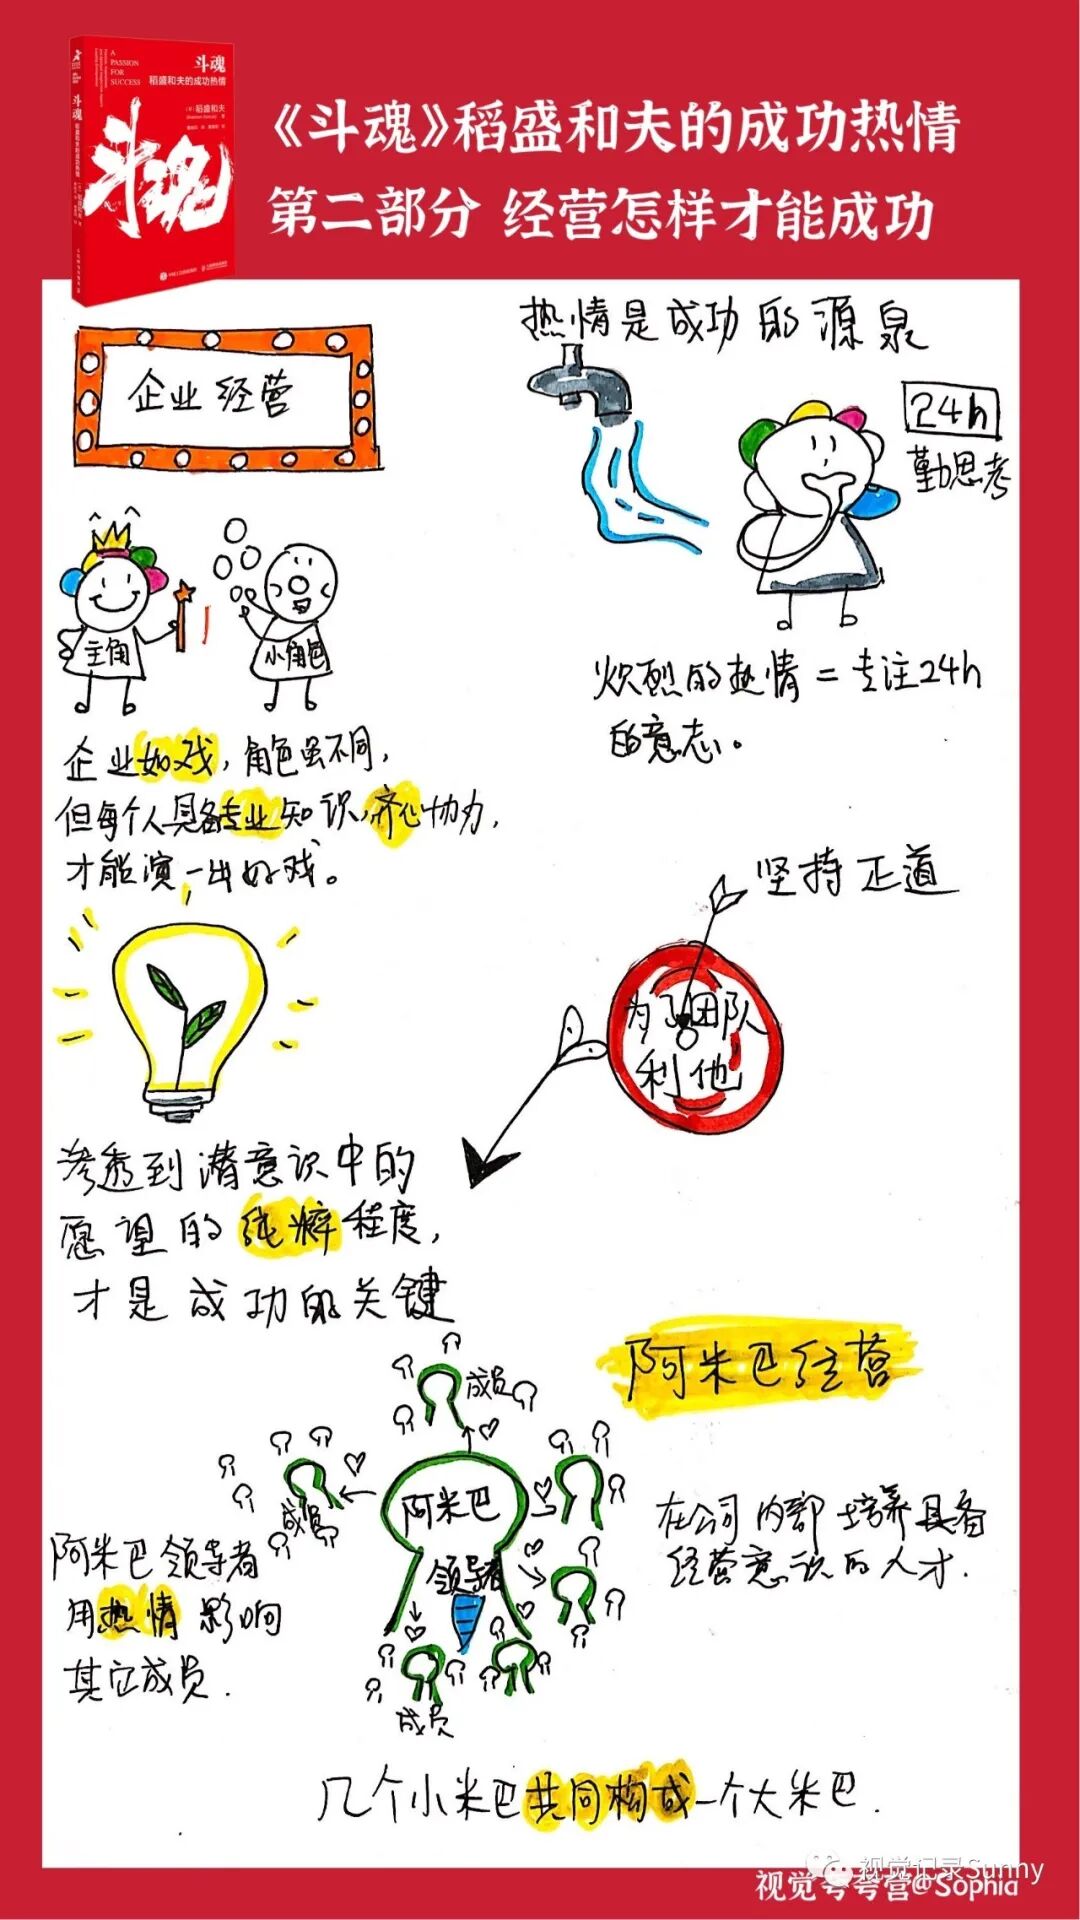 A
PASSION
FOR
SUCCESS
斗魂
稻盛和夫的成功热情
稻盛和夫
斗魂
斗魂
稻盛和夫的成功热情
《斗魂》稻盛和夫的成功热情
第二部分 经营怎样才能成功
企业经营
热情是成功的源泉
24h
勤思考
主角
小角色
炽烈的热情=专注24h
的意志。
企业如戏,角色虽不同,
但每个人具备专业知识,齐心协力,
才能演一出好戏。
坚持正道
为了团队
利他
渗透到潜意识中的
愿望的纯粹程度,
才是成功的关键
阿米巴经营
成员
成员
阿米巴
领导者
成员
在公司内部培养具备
经营意识的人才.
阿米巴领导者
用热情影响
其它成员.
几个小米巴共同构成一个大米巴.
视觉记录Sunny
视觉考考营@Sophia